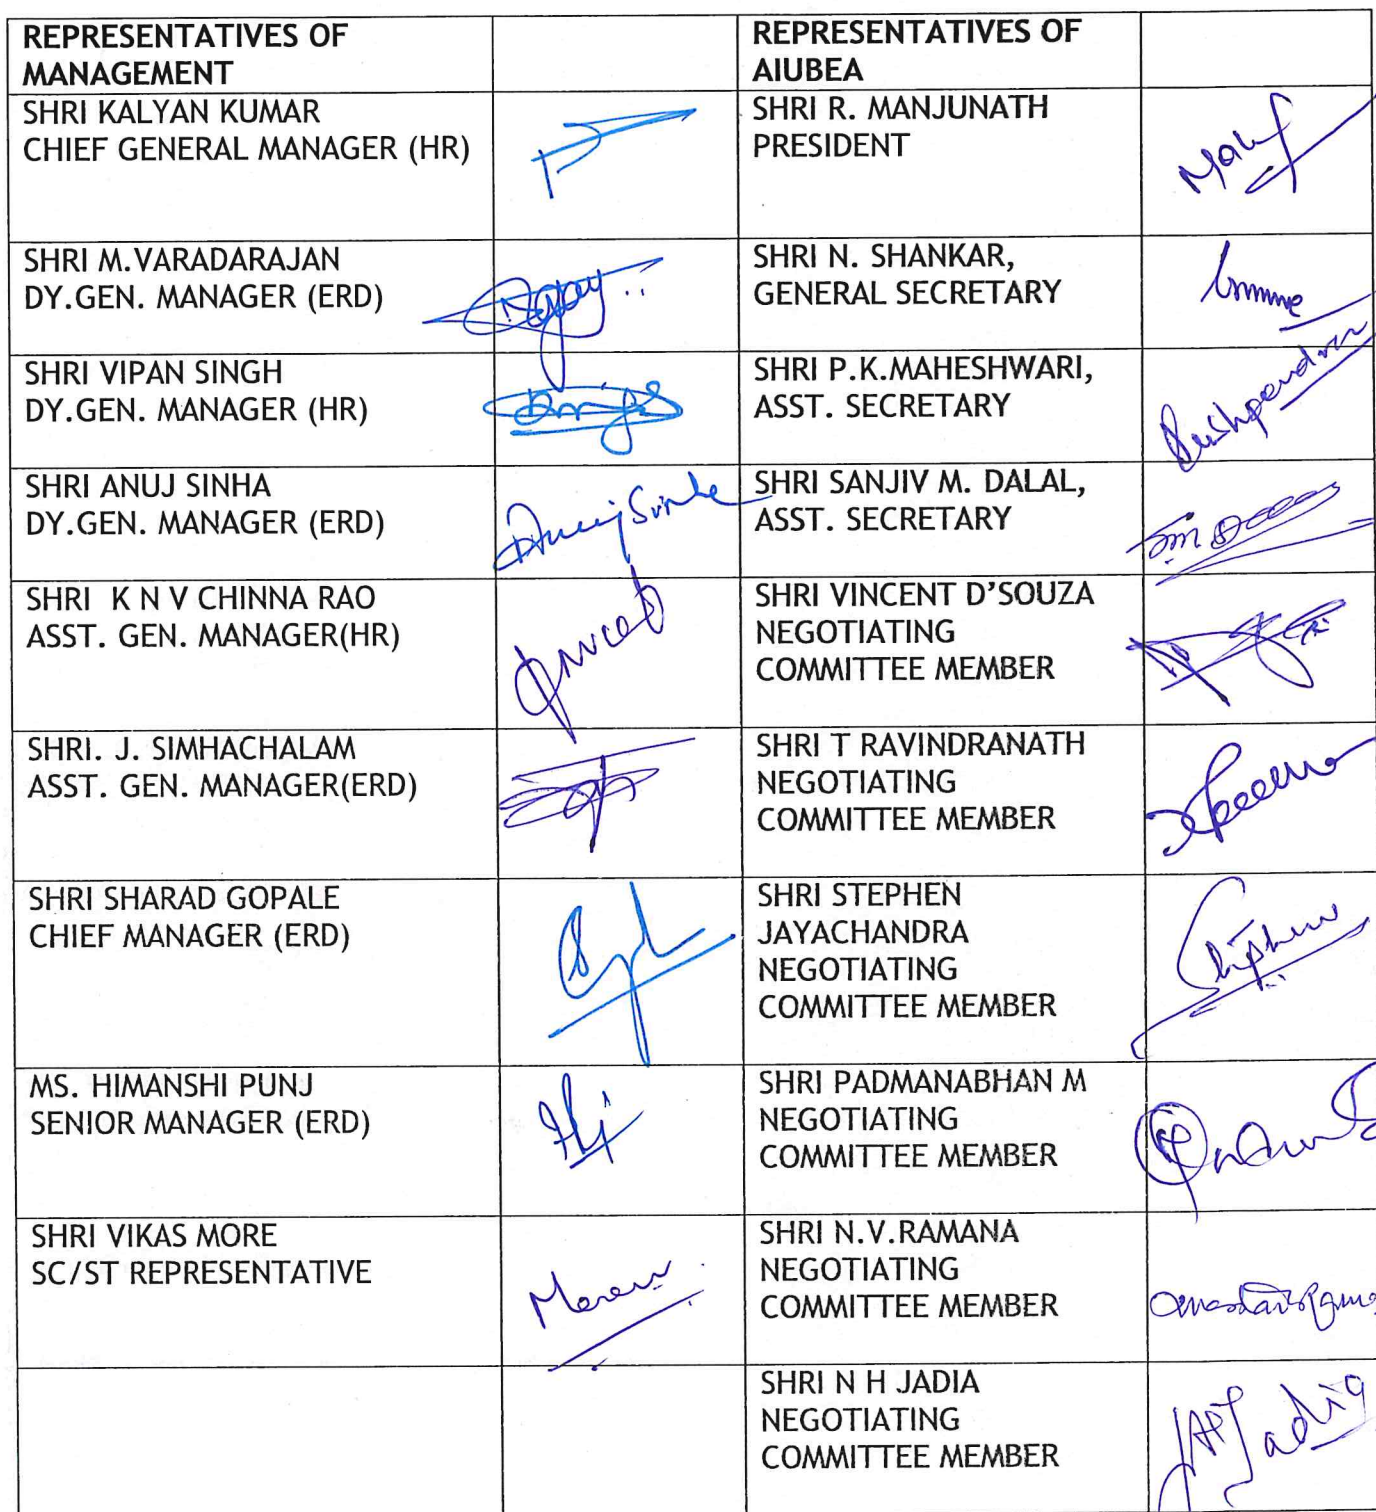 REPRESENTATIVES OF
MANAGEMENT
REPRESENTATIVES OF
AIUBEA
SHRI KALYAN KUMAR
CHIEF GENERAL MANAGER (HR)
SHRI R. MANJUNATH
PRESIDENT
SHRI M.VARADARAJAN
DY.GEN. MANAGER (ERD)
SHRI N. SHANKAR,
GENERAL SECRETARY
SHRI VIPAN SINGH
DY.GEN. MANAGER (HR)
SHRI P.K.MAHESHWARI,
ASST. SECRETARY
Pushpendra
SHRI ANUJ SINHA
DY.GEN. MANAGER (ERD)
Anuj Sinha
SHRI SANJIV M. DALAL,
ASST. SECRETARY
SHRI K N V CHINNA RAO
ASST. GEN. MANAGER(HR)
SHRI VINCENT D'SOUZA
NEGOTIATING
COMMITTEE MEMBER
SHRI. J. SIMHACHALAM
ASST. GEN. MANAGER(ERD)
SHRI T RAVINDRANATH
NEGOTIATING
COMMITTEE MEMBER
SHRI SHARAD GOPALE
CHIEF MANAGER (ERD)
SHRI STEPHEN
JAYACHANDRA
NEGOTIATING
COMMITTEE MEMBER
MS. HIMANSHI PUNJ
SENIOR MANAGER (ERD)
SHRI PADMANABHAN M
NEGOTIATING
COMMITTEE MEMBER
SHRI VIKAS MORE
SC/ST REPRESENTATIVE
SHRI N.V.RAMANA
NEGOTIATING
COMMITTEE MEMBER
SHRI N H JADIA
NEGOTIATING
COMMITTEE MEMBER
Jadia